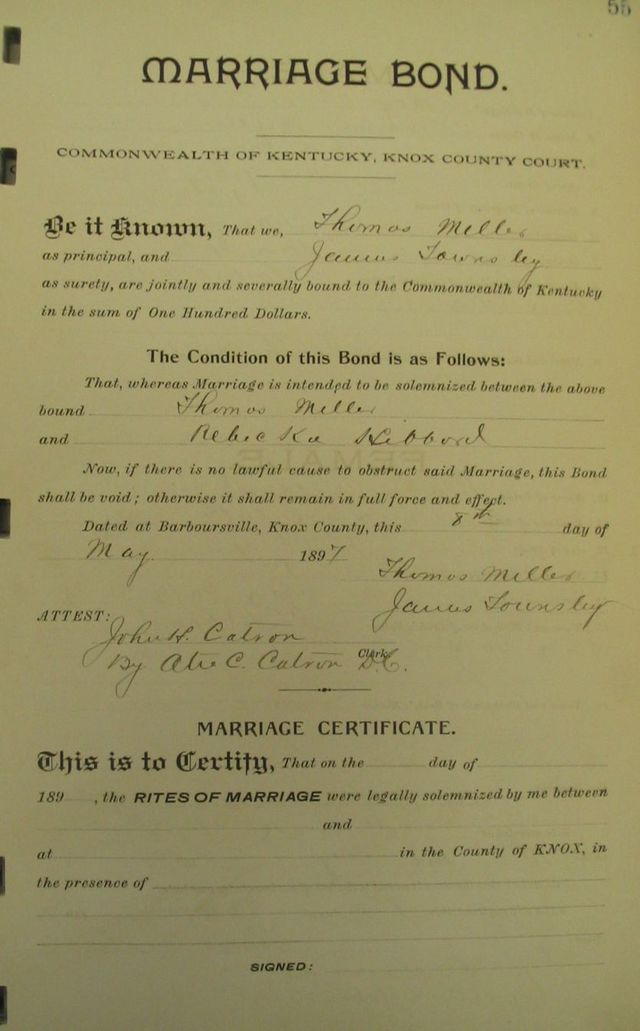 55
MARRIAGE BOND.
COMMONWEALTH OF KENTUCKY, KNOX COUNTY COURT.
Be it Known, That we, Thomas Miller
as principal, and James Townsley
as surety, are jointly and severally bound to the Commonwealth of Kentucky
in the sum of One Hundred Dollars.
The Condition of this Bond is as Follows:
That, whereas Marriage is intended to be solemnized between the above
bound Thomas Miller
and Rebecka Hibbard
Now, if there is no lawful cause to obstruct said Marriage, this Bond
shall be void; otherwise it shall remain in full force and effect.
Dated at Barboursville, Knox County, this 8th day of
May 1897
Thomas Miller
James Townsley
ATTEST:
John H. Catron
Clerk.
By C. Catron D.C.
MARRIAGE CERTIFICATE.
This is to Certify, That on the day of
189 , the RITES OF MARRIAGE were legally solemnized by me between
and
at in the County of KNOX, in
the presence of
SIGNED: